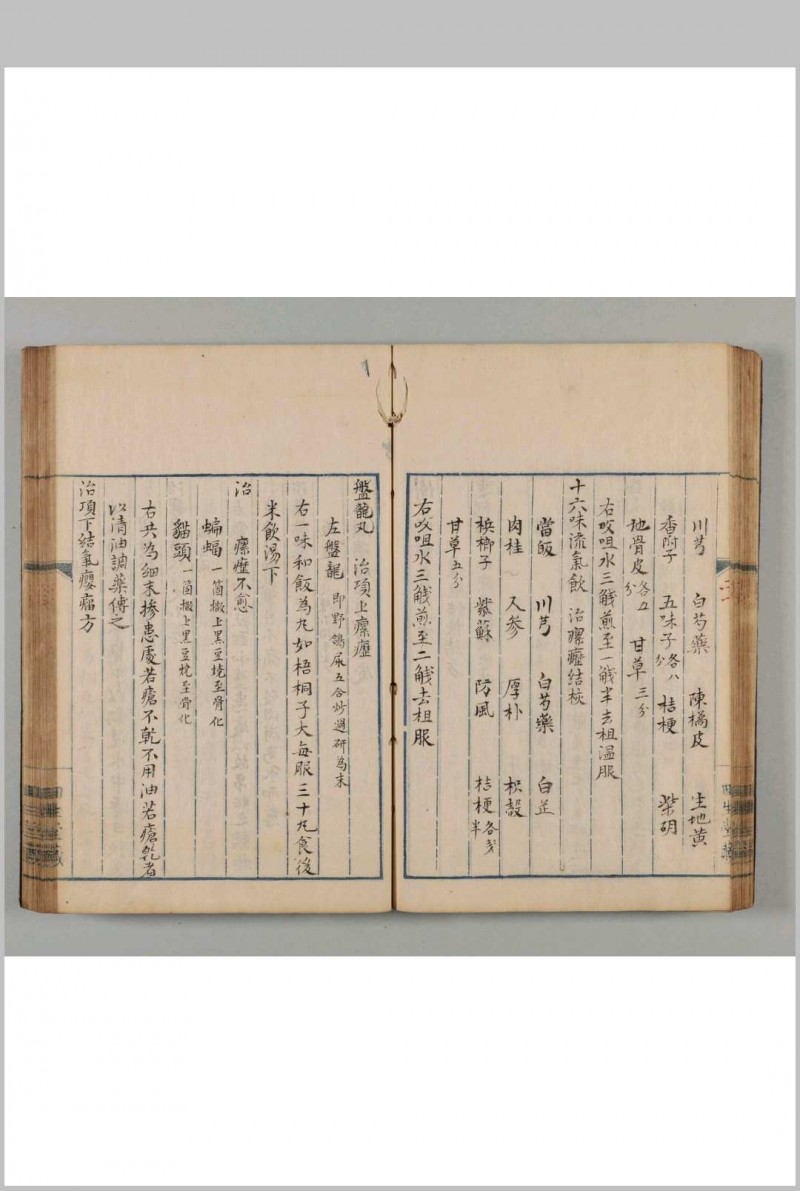 川芎 白芍藥 陳橘皮 生地黄
香附子 五味子各八分 桔梗 柴胡
地骨皮各五分 甘草三分
右㕮咀水三觥煎至一觥半去柤温服
十六味流氣飲 治瘰癧結核
當皈 川芎 白芍藥 白芷
肉桂 人参 厚朴 枳殼
梹榔子 紫蘇 防風 桔梗各戔半
甘草五分
右㕮咀水三觥煎至二觥去柤服
盤龍丸 治項上瘰癧
左盤龍即野鴿屎五合炒過研為末
右一味和飯為丸如梧桐子大每服三十丸食後
米飲湯下
治瘰癧不愈
蝙蝠一箇㨆上黑豆燒至骨化
貓頭一箇㨆上黑豆燒至骨化
右共為細末摻患處若瘡不乾不用油若瘡乾者
以清油調藥傅之
治項下結氣癭瘤方